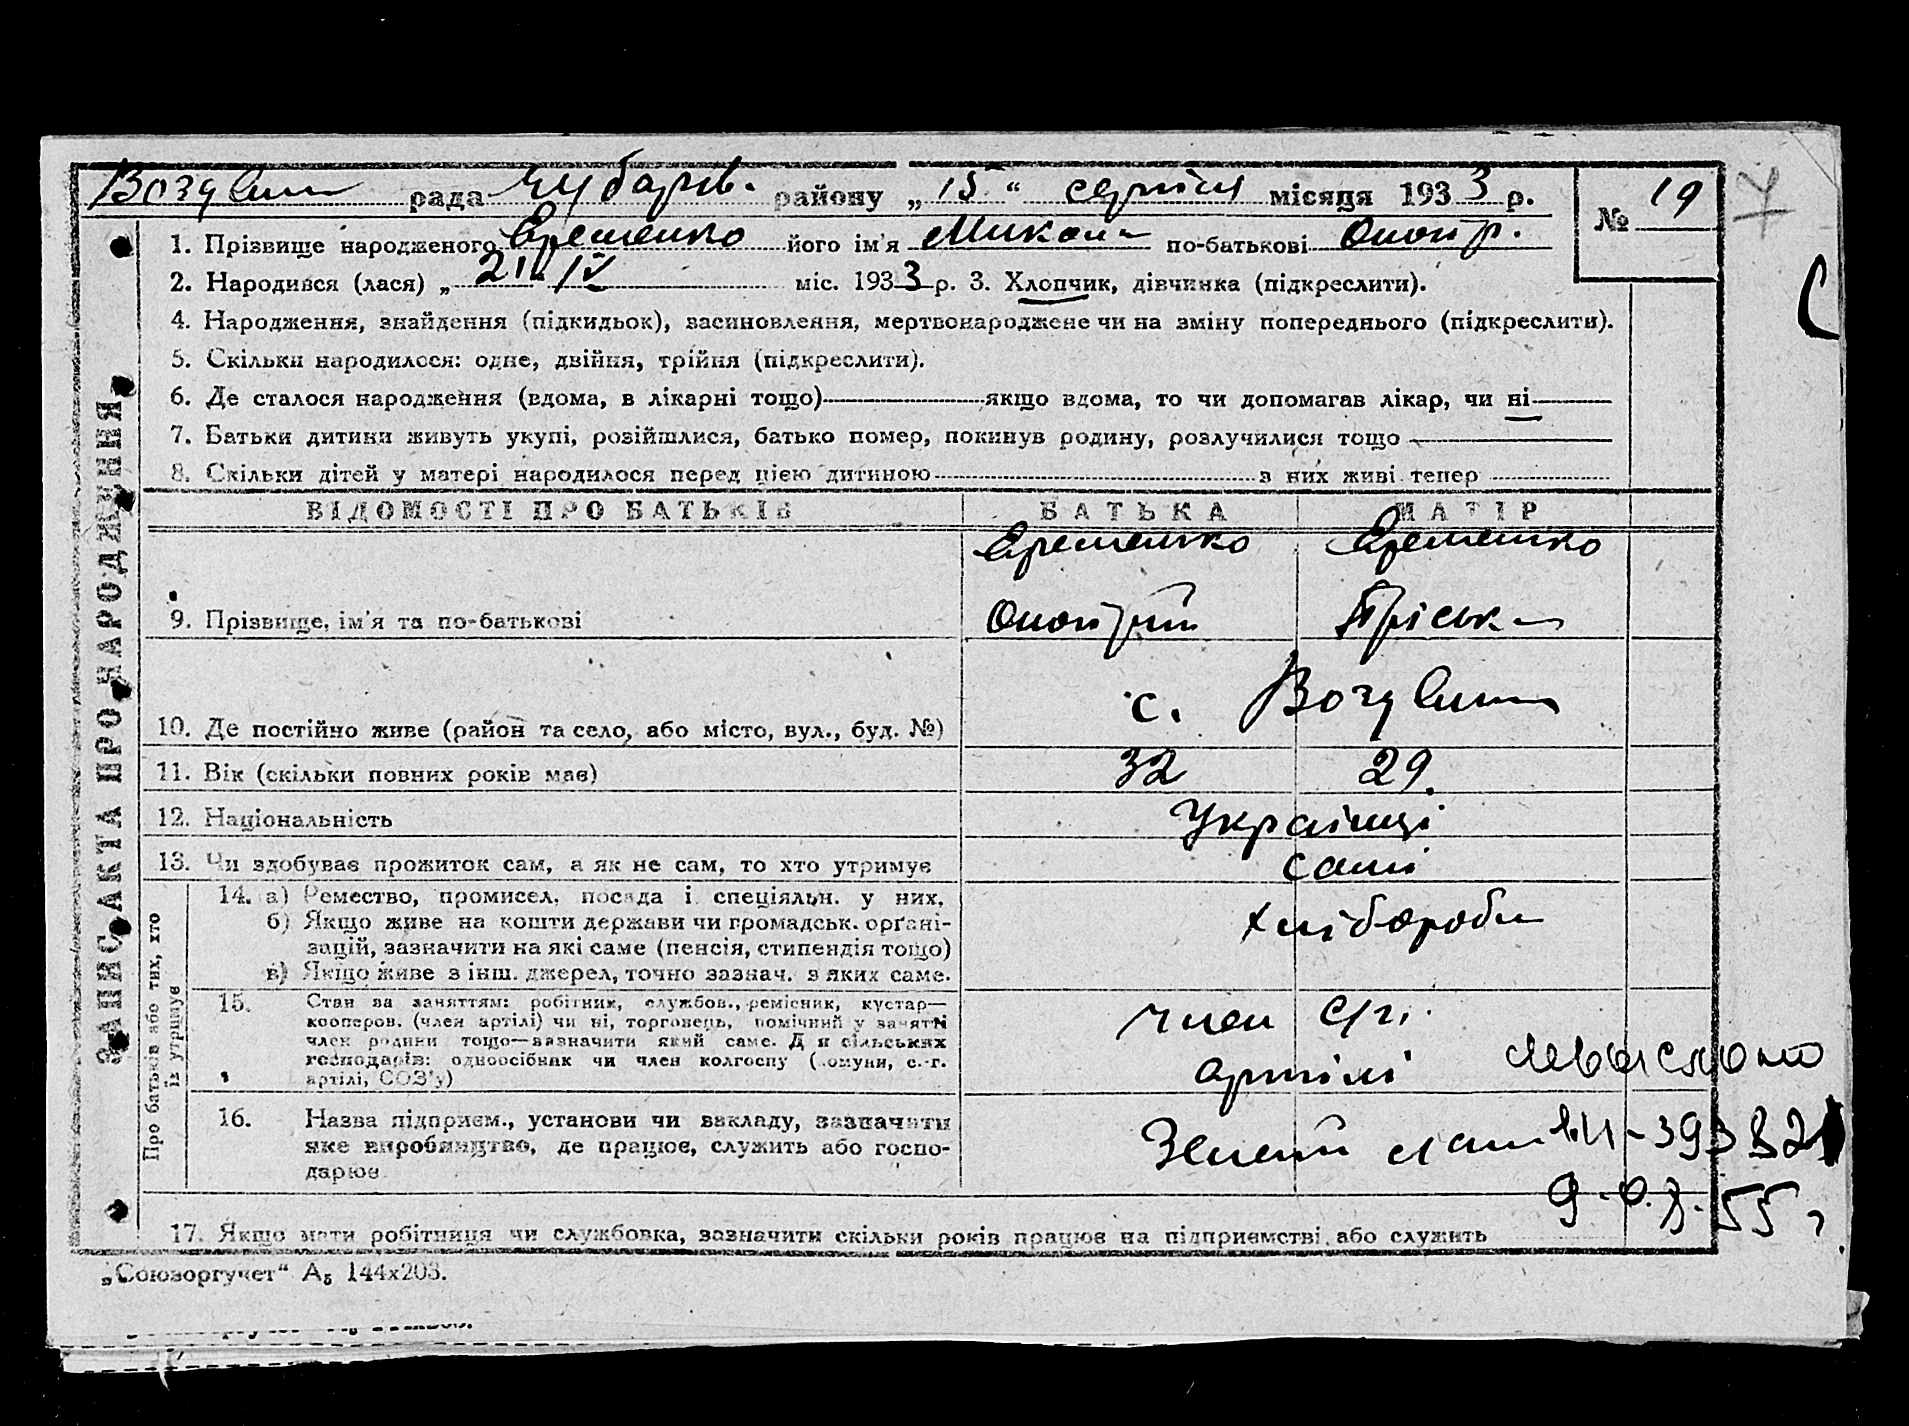 рада Чубарів. району „15“ серпня місяця 1933 р.
№ 19
1. Прізвище народженого Єременко його ім'я Микола по-батькові Оноп р.
2. Народився (лася) „21 IV міс. 1933 р. 3. Хлопчик, дівчинка (підкреслити).
4. Народження, знайдення (підкидьок), васиновлення, мертвонароджене чи на зміну попереднього (підкреслити).
5. Скільки народилося: одне, двійня, трійня (підкреслити).
6. Де сталося народження (вдома, в лікарні тощо) якщо вдома, то чи допомагав лікар, чи ні
7. Батьки дитини живуть укупі, розійшлися, батько помер, покинув родину, розлучилися тощо
8. Скільки дітей у матері народилося перед цією дитиною з них живі тепер
ЗАПИС АКТА ПРО НАРОДЖЕННЯ
ВІДОМОСТІ ПРО БАТЬКІВ БАТЬКА МАТІР
Єременко Єременко
9. Прізвище, ім'я та по-батькові Пріська
10. Де постійно живе (район та село, або місто, вул., буд. №) с.
11. Вік (скільки повних років має) 32 29
12. Національність Українці
13. Чи здобуває прожиток сам, а як не сам, то хто утримує самі
Про батьків або тих, хто їх утримує
14. а) Ремество, промисел, посада і спеціяльн. у них. хлібороби
б) Якщо живе на кошти держави чи громадськ. орґані-
зацій, зазначити на які саме (пенсія, стипендія тощо)
в) Якщо живе з інш. джерел, точно зазнач. з яких саме.
15. Стан за заняттям: робітник, службов., ремісник, кустар—
кооперов. (член артілі) чи ні, торговець, помічний у занятті член с/г.
член родини тощо—зазначити який саме. Для сільських
господарів: одноосібник чи член колгоспу (комуни, с.-г.
артілі, СОЗ'у) артілі
16. Назва підприєм., установи чи закладу, зазначити
яке виробництво, де працює, служить або госпо- Зелений
дарює
55 г.
17. Якщо мати робітниця чи службовка, зазначити скільки років працює на підприємстві або служить
„Союзоргучет“ А₅ 144х203.